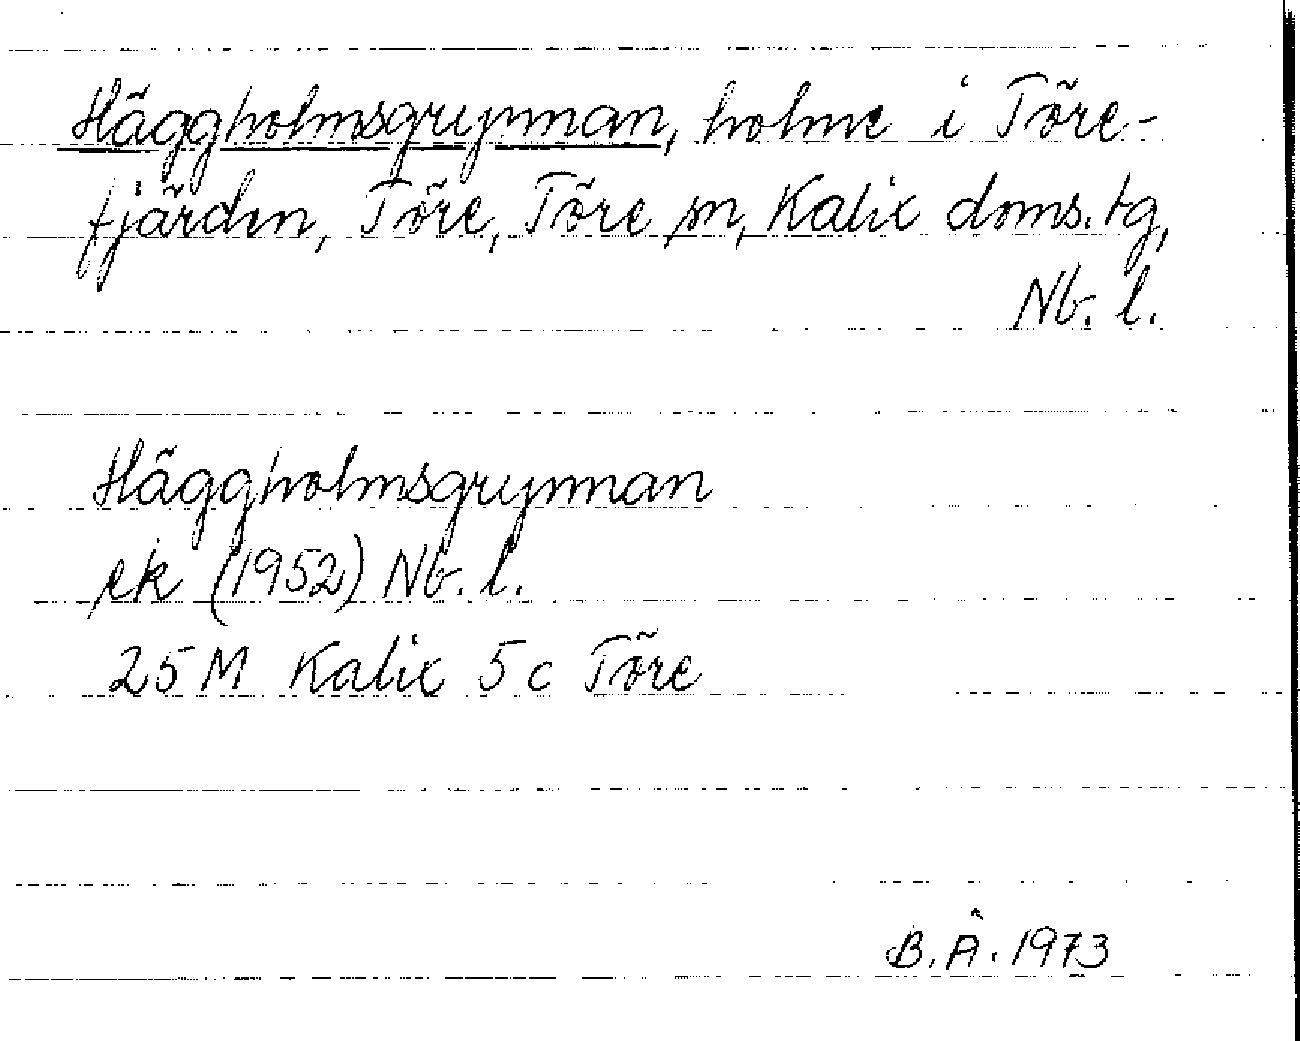 Häggholmsgrynnan, holme i Töre-
fjärden, Töre, Töre sn, Kalix doms.tg,
Nb. l.
Häggholmsgrynnan
ek (1952) Nb. l.
25 M Kalix 5 c Töre
B. Å. 1973